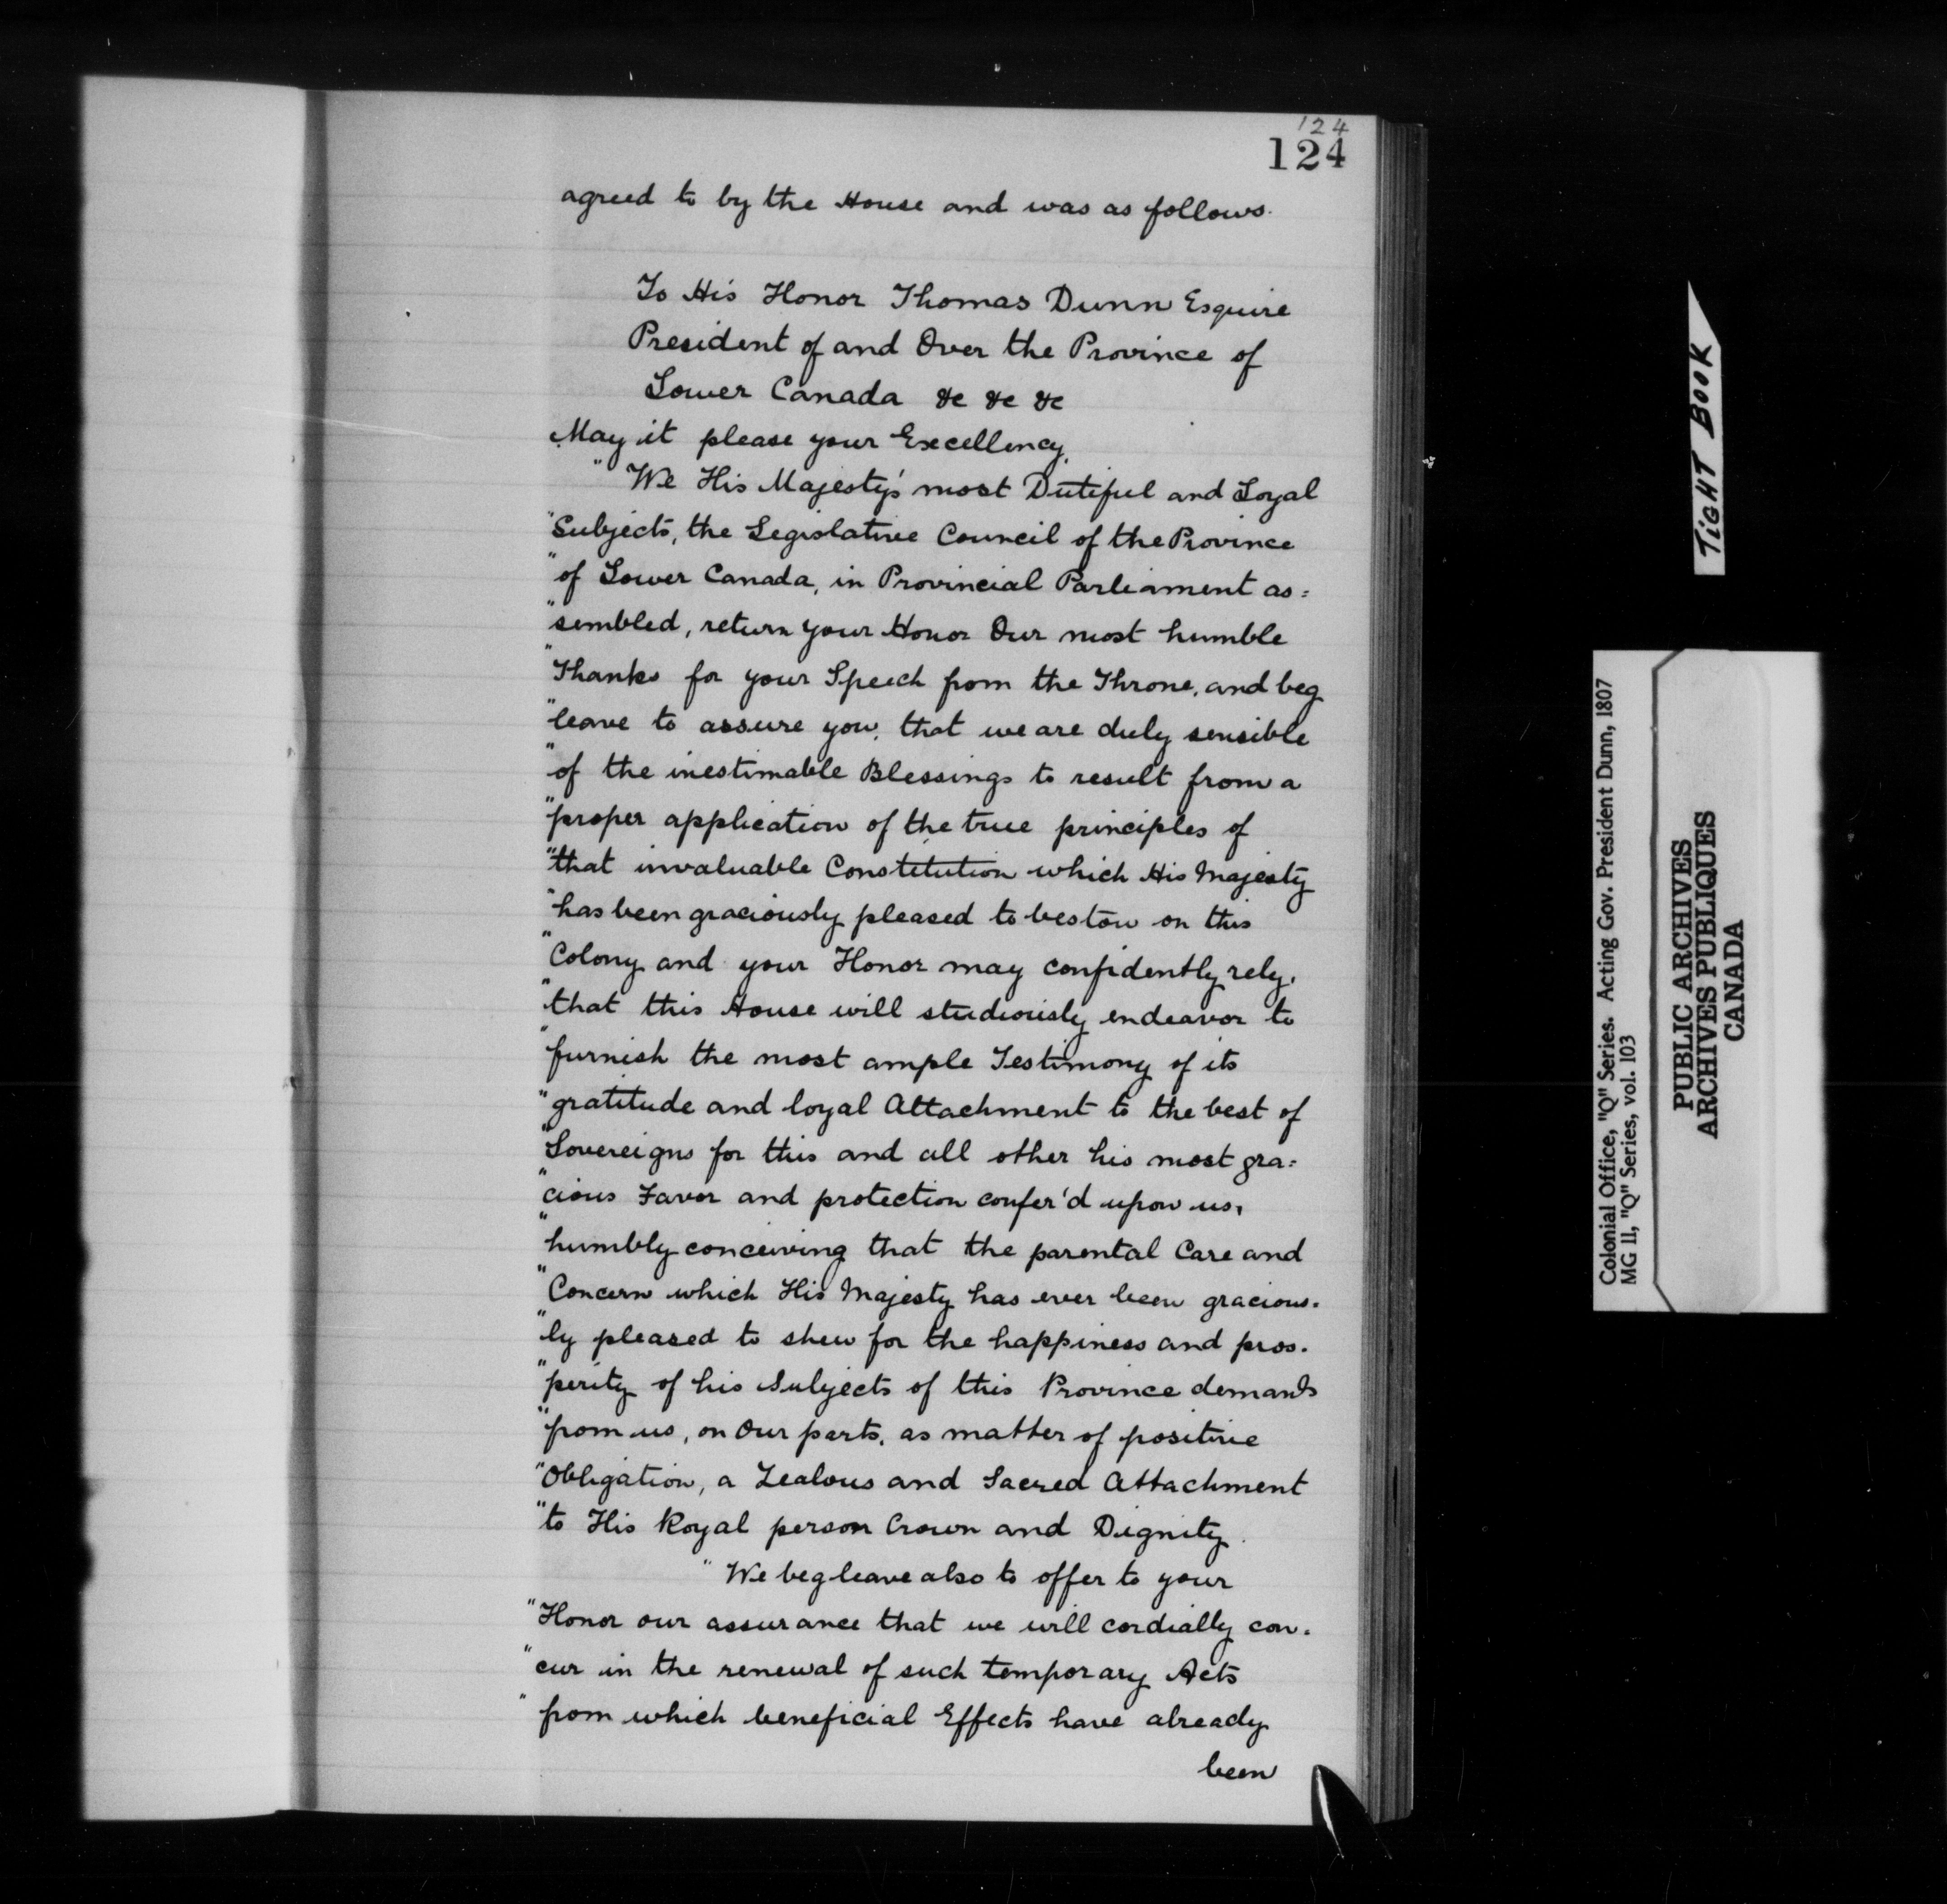 124
124
agreed to by the House and was as follows.
To His Honor Thomas Dunn Esquire
President of and Over the Province of
Lower Canada &c &c &c
May it please your Excellency,
" We His Majesty's most Dutiful and Loyal
"Subjects, the Legislative Council of the Province
"of Lower Canada, in Provincial Parliament as=
"sembled, return your Honor Our most humble
"Thanks for your Speech from the Throne, and beg
"leave to assure you, that we are duly sensible
"of the inestimable Blessings to result from a
"proper application of the true principles of
"that invaluable Constitution which His Majesty
"has been graciously pleased to bestow on this
"Colony and your Honor may confidently rely,
"that this House will studiously endeavor to
"furnish the most ample Testimony of its
"gratitude and loyal Attachment to the best of
"Sovereigns for this and all other his most gra=
"cious Favor and protection confer'd upon us,
"humbly conceiving that the parental Care and
"Concern which His Majesty has ever been gracious-
"ly pleased to shew for the happiness and pros-
"perity of his Subjects of this Province demands
"from us, on Our parts, as matter of positive
"Obligation, a Zealous and Sacred Attachment
"to His Royal person Crown and Dignity.
" We beg leave also to offer to your
"Honor our assurance that we will cordially con-
"cur in the renewal of such temporary Acts
"from which beneficial Effects have already
been
TIGHT BOOK
Colonial Office, "Q" Series. Acting Gov. President Dunn, 1807
MG 11, "Q" Series, vol. 103
PUBLIC ARCHIVES
ARCHIVES PUBLIQUES
CANADA